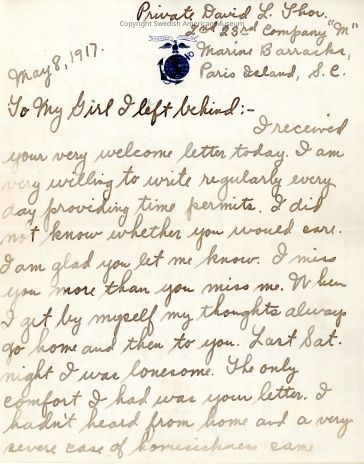 Copyright Swedish American Museum
Private David L. Thor.
23rd Company "M"
Marine Barracks,
Paris Island, S.C.
May 8, 1917.
To My Girl I left behind:-
I received
your very welcome letter today. I am
very willing to write regularly every
day providing time permits. I did
not know whether you would care.
I am glad you let me know. I miss
you more than you miss me. When
I get by myself my thoughts always
go home and then to you. Last Sat.
night I was lonesome. The only
comfort I had was your letter. I
hadn't heard from home and a very
severe case of homesickness came